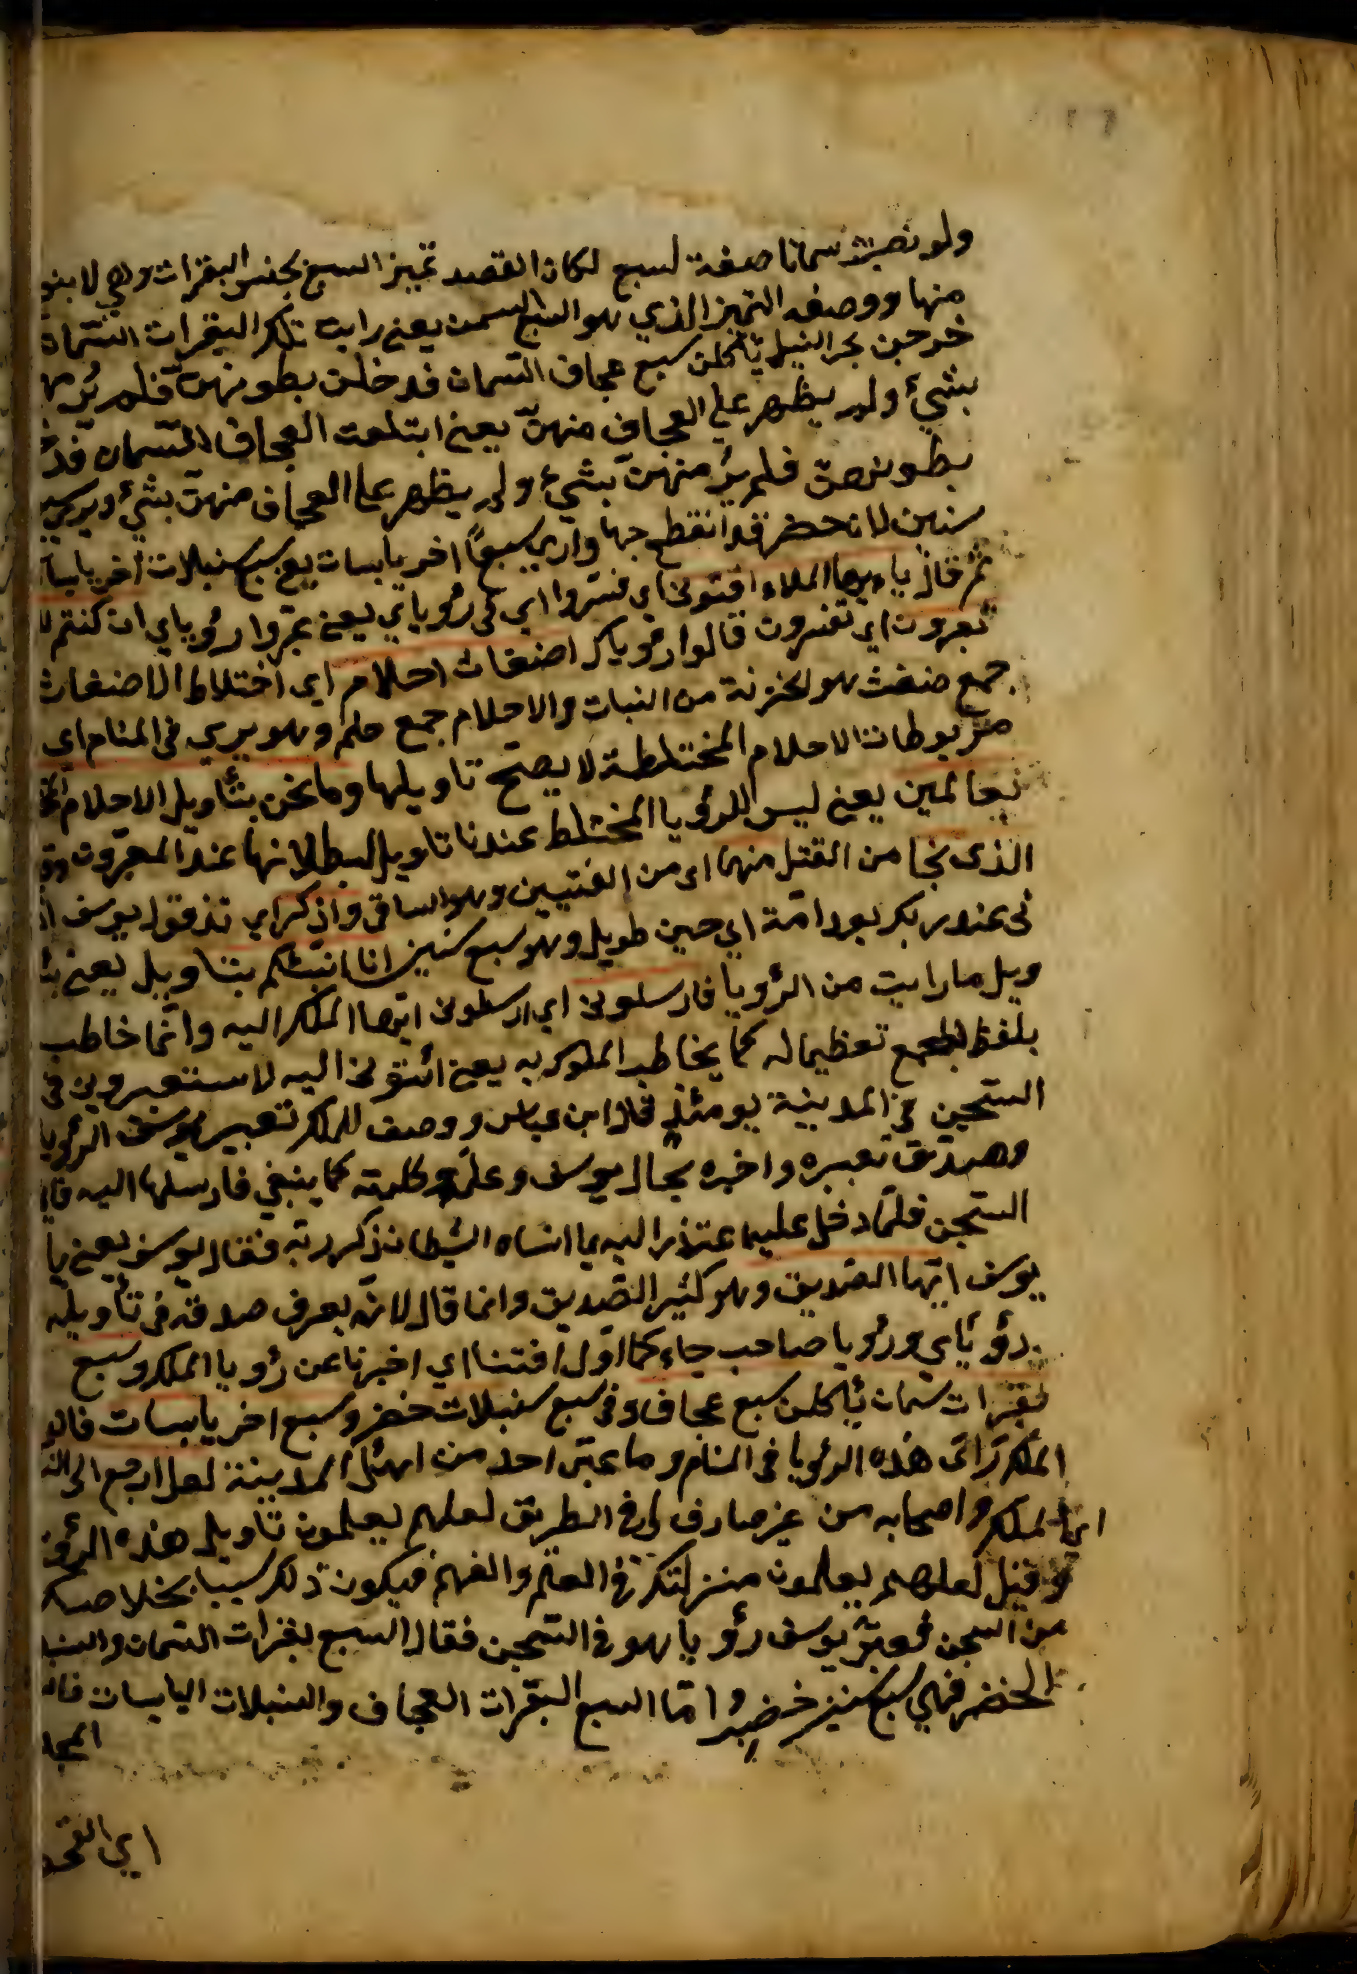 ولو نصبت سمانا صفة لسبع لكان القصد تميز السبع بجنس البقرات ولا
منها ووصف التميز الذي هو السبع السمن يعني رايت تلك البقرات السمان
خرجن بحر النيل يأكلن سبع عجاف السمان فدخلن بطونهن فلم ير
بشيء ولم يظهر على العجاف منهن يعني ابتلعت العجاف السمان
بطونهن فلم ير منهن بشيء ولم يظهر على العجاف منهن بشيء ويرى
خضر قد انقطع حبها وارى سبعا اخر يابسات يعني سبع سنبلات اخر
ثم قال ياءيها الملاء افتوني اي فسروا اي في رؤياي يعني عبروا رؤياي ان كنتم
تعبرون اي تفسرون قالوا رؤياك اضغاث احلام اي اختلاط الاضغاث
جمع ضغث هو الحزنة من النبات والاحلام جمع حلم وهو يرى في المنام اي
مربوطات الاحلام المختلطة لا يصح تاويلها وما نحن بتأويل الاحلام
بعالمين يعني ليس للرؤيا المختلط عندنا تاويل لانها عند المعبرون
الذى نجا من القتل منهما اى من الفتيين وهو الساقى واذكر اي تذ قول يوسف
نى عند ربك بعد امة اي حين طويل وهو سبع سنين انا انبئكم بتاويله يعني
ويل ما رايت من الرؤيا فارسلون اي ارسلوني ايها الملك اليه وانما خاطب
بلفظ الجمع تعظيما له كما يخاطب الملوك به يعني ائتوني اليه لاستعبرو
السجن في المدينة يومئذ قال ابن عباس ووصف للملك تعبير يوسف الرؤيا
وصدق تعبيره واخبره بحال يوسف وعلم وكلمته كما ينبغي فارسلها اليه
السجن فلما دخل عليه اعتذر اليه بما انساه الشيطان ذكر ربه فقال يوسف يعني يا
يوسف ايها الصديق وهو كثير التصديق وانما قال لانه يعرف صدقه في تأويله
رؤياي ورؤيا صاحب جاء كما اول افتنا اي اخبرنا عن رؤيا الملك وسبع
بقرات سمان يأكلن سبع عجاف وفي سبع سنبلات خضر وسبع اخر يابسات
الملك رائ هذه الرؤيا في المنام وما عبر احد من اهل المدينة لعل ارجع الى
الملك واصحابه من غير صارف لي في الطريق لعلهم يعلمون تاويل هذه
وقيل لعلهم يعلمون منزلتك في العلم والفهم فيكون ذلك سببا بخلاصك
من السجن فعبر يوسف رؤيا هو في السجن فقال السبع بقرات السمان
الخضر فهي سبع سنين خضر واما السبع البقرات العجاف والسنبلات اليابسات
اي القحط